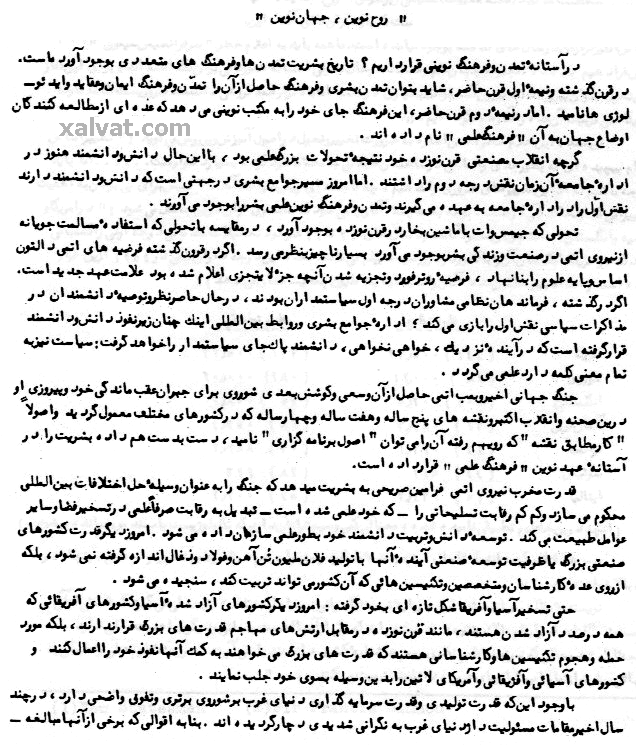 " روح نوین ، جهان نوین "
در آستانهٔ تمدن و فرهنگ نوینی قرار داریم ؟ تاریخ بشریت تمدن ها و فرهنگ های متعددی بوجود آورد ماست .
در قرن گذشته و نیمهٔ اول قرن حاضر ، شاید بتوان تمدن بشری و فرهنگ حاصل از آن را تمدن و فرهنگ ایمان و عقاید و اید ئو ـ
لوژی ها نامید . اما در نیمهٔ دوم قرن حاضر ، این فرهنگ جای خود را به مکتب نوینی می دهد که عده ای از مطالعه کنندگان
اوضاع جهان به آن " فرهنگ علمی " نام داده اند .
xalvat.com
گرچه انقلاب صنعتی قرن نوزده خود نتیجهٔ تحولات بزرگ علمی بود ، با این حال دانش و دانشمند هنوز در
ادارهٔ جامعهٔ آن زمان نقش درجه دوم را داشتند . اما امروز مسیر جوامع بشری در جهتی است که دانش و دانشمند دارند
نقش اول را در ادارهٔ جامعه به عهده می گیرند و تمدن و فرهنگ نوین علمی بشر را بوجود می آورند .
تحولی که جیمس وات با ماشین بخار در قرن نوزده بوجود آورد ، در مقایسه با تحولی که استفادهٔ مسالمت جویانه
از نیروی اتمی در صنعت و زندگی بشر بوجود می آورد بسیار ناچیز بنظر می رسد . اگر در قرون گذشته فرضیه های اتمی دالتون
اساس و پایه علوم را بنا نهاد ، فرضیهٔ روترفورد و تجزیه شدن آنچه جزء لایتجزی اعلام شده بود علامت عهد جدید است .
اگر در گذشته ، فرماندهان نظامی مشاوران درجه اول سیاستمداران بودند ، در حال حاضر نظر و توصیهٔ دانشمندان در
مذاکرات سیاسی نقش اول را بازی می کند ؛ ادارهٔ جوامع بشری و روابط بین المللی اینک چنان زیر نفوذ دانش و دانشمند
قرار گرفته است که در آیندهٔ نزدیک ، خواهی نخواهی ، دانشمند پا بجای سیاستمدار را خواهد گرفت : سیاست نیز به
تمام معنی کلمه دارد علمی می گردد .
جنگ جهانی اخیر و بمب اتمی حاصل از آن و سعی و کوشش بعدی شوروی برای جبران عقب ماندگی خود و پیروزی او
در این صحنه و انقلاب اکتبر و نقشه های پنج ساله و هفت ساله و چهار ساله که در کشورهای مختلف معمول گردید و اصولاً
" کار مطابق نقشه " که رویهم رفته آن را می توان " اصول برنامه گزاری " نامید ، دست بدست هم داده بشریت را در
آستانهٔ عهد نوین " فرهنگ علمی " قرار داده است .
قدرت مخرب نیروی اتمی فرامین صریحی به بشریت میدهد که جنگ را به عنوان وسیلهٔ حل اختلافات بین المللی
محکوم می سازد و کم کم رقابت تسلیحاتی را ـ که خود علمی شده است ـ تبدیل به رقابت صرفاً علمی در تسخیر فضا و سایر
عوامل طبیعت می کند . توسعهٔ دانش و تربیت دانشمند خود بطور علمی سازمان داده می شود . امروز دیگر قدرت کشورهای
صنعتی بزرگ یا ظرفیت توسعهٔ صنعتی آیندهٔ آنها با تولید فلان ملیون تن آهن و فولاد و ذغال اندازه گرفته نمی شود ، بلکه
از روی عدهٔ کارشناسان و متخصصین و تکنیسین هائی که آن کشور می تواند تربیت کند ، سنجیده می شود .
حتی تسخیر آسیا و آفریقا شکل تازه ای بخود گرفته : امروز دیگر کشورهای آزاد شدهٔ آسیا و کشورهای آفریقائی که
همه در صدد آزاد شدن هستند ، مانند قرن نوزده در مقابل ارتش های مهاجم قدرت های بزرگ قرار ندارند ، بلکه مورد
حمله و هجوم تکنیسین ها و کارشناسانی هستند که قدرت های بزرگ می خواهند به کمک آنها نفوذ خود را اعمال کنند و
کشورهای آسیائی و آفریقائی و آمریکای لاتین را بدین وسیله بسوی خود جلب نمایند .
با وجود این که قدرت تولیدی و قدرت سرمایه گذاری دنیای غرب بر شوروی برتری و تفوق واضحی دارد ، در چند
سال اخیر مقامات مسئولیت دار دنیای غرب به نگرانی شدیدی دچار گردیده اند . بنا به اقوالی که برخی از آنها مبالغه ـ